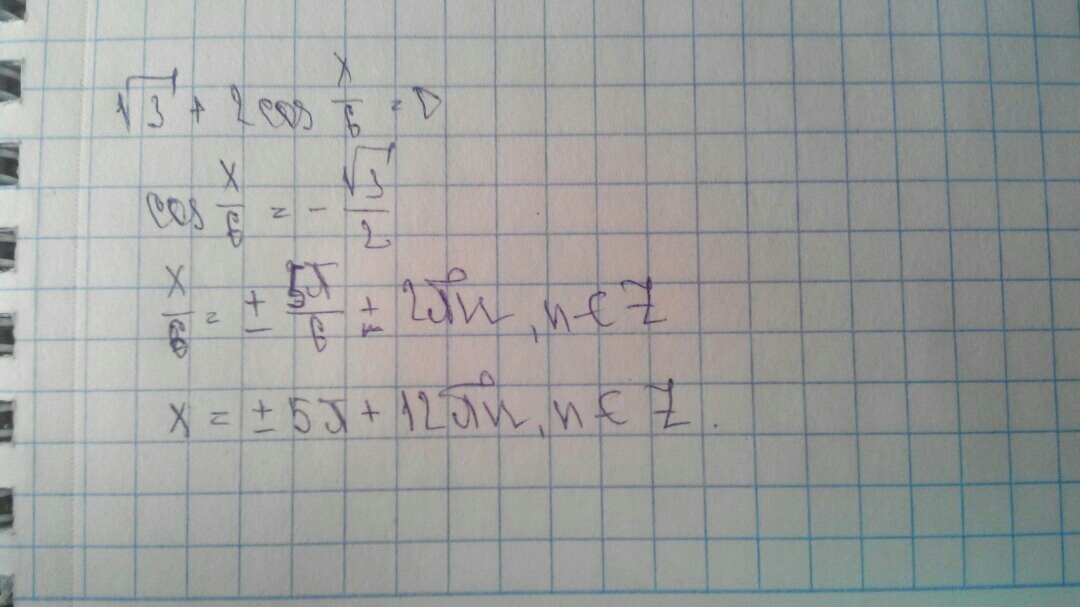 √3 + 2 cos x/6 = 0
cos x/6 = - √3/2
x/6 = ± 5π/6 + 2πn, n ∈ Z
x = ± 5π + 12πn, n ∈ Z.